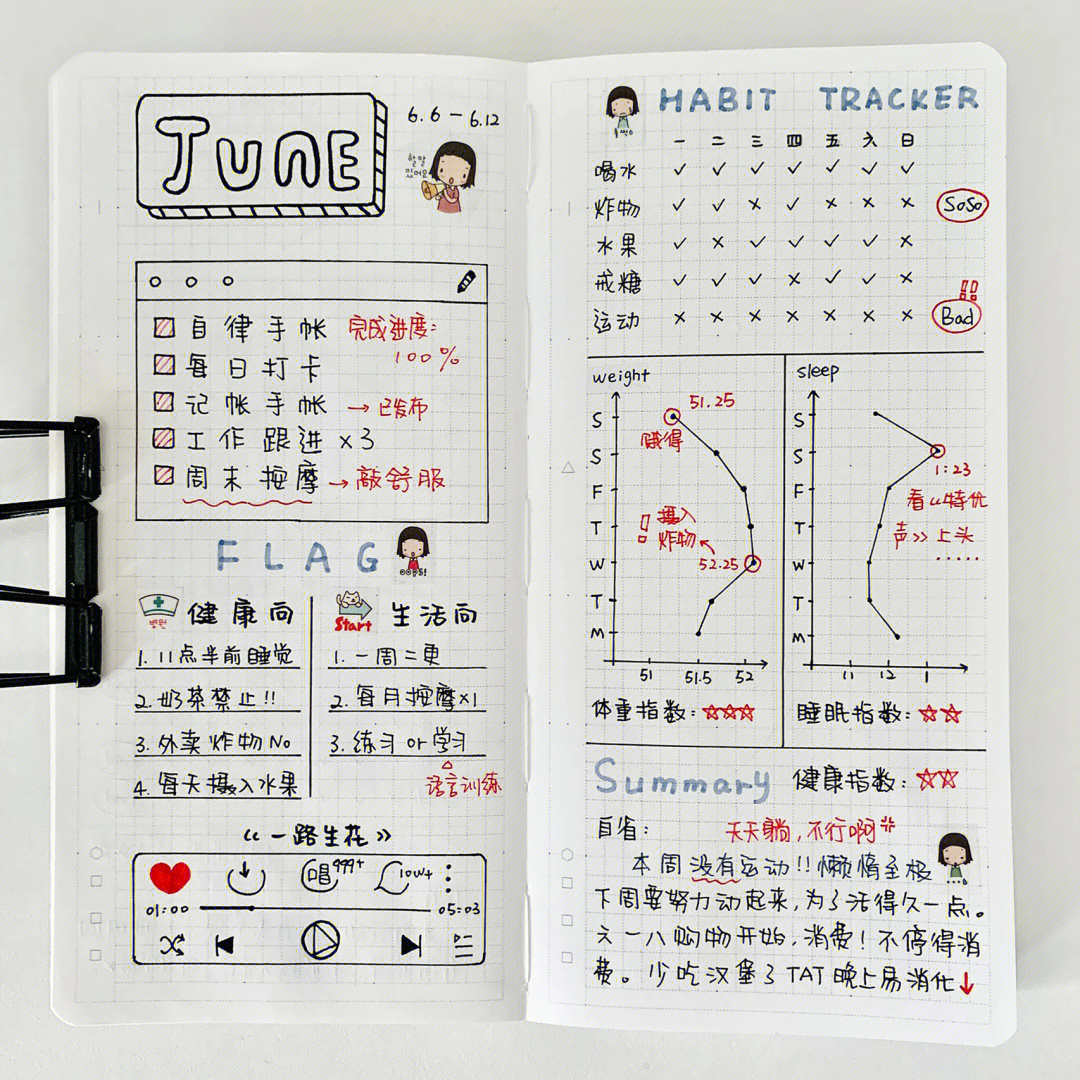 JUNE
6.6 - 6.12
할말
있어요
自律手帐 完成进度:
100%
每日打卡
记帐手帐 → 已发布
工作跟进 ×3
周末按摩 → 敲舒服
FLAG
OOPS!
병원
健康向
1. 11点半前睡觉
2. 奶茶禁止!!
3. 外卖炸物No
4. 每天摄入水果
Start
生活向
1. 一周二更
2. 每月按摩×1
3. 练习 or 学习
语言训练
《一路生花》
唱 999+
10w+
01:00
05:03
HABIT TRACKER
一 二 三 四 五 六 日
喝水 ✓ ✓ ✓ ✓ ✓ ✓ ✓
炸物 ✓ ✓ × ✓ × × × SoSo
水果 ✓ × ✓ ✓ ✓ ✓ ×
戒糖 ✓ ✓ ✓ × ✓ ✓ × !!
运动 × × × × × × × Bad
weight
S
S
F
T
W
T
M
51.25
贼得
!摄入
炸物
52.25
51 51.5 52
体重指数: ☆☆☆
sleep
S
S
F
T
W
T
M
1:23
看《特优
声》上头
.....
11 12 1
睡眠指数: ☆☆
Summary 健康指数: ☆☆
自省: 天天躺,不行啊
本周没有运动!!懒惰至极
下周要努力动起来,为了活得久一点。
六一八购物开始,消费!不停得消
费。少吃汉堡了TAT晚上易消化↓